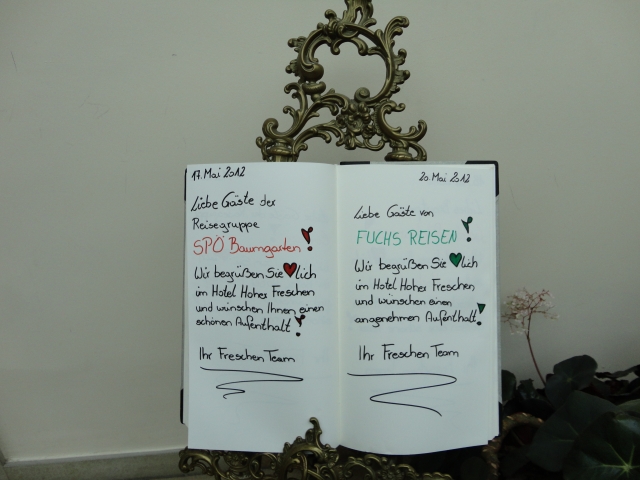 17. Mai 2012
Liebe Gäste der
Reisegruppe
SPÖ Baumgarten!
Wir begrüßen Sie ♥lich
im Hotel Hoher Freschen
und wünschen Ihnen einen
schönen Aufenthalt!
Ihr Freschen Team
20. Mai 2012
Liebe Gäste von
FUCHS REISEN!
Wir begrüßen Sie ♥lich
im Hotel Hoher Freschen
und wünschen einen
angenehmen Aufenthalt!
Ihr Freschen Team